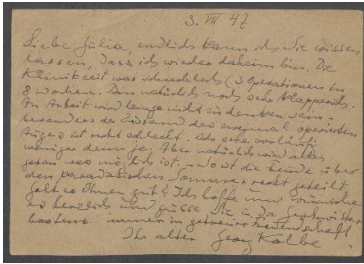 3. VII 47
Liebe Julia, endlich kann ich Sie wissen
lassen, dass ich wieder daheim bin. Die
Klinikzeit war schrecklich (3 Operationen in
8 Wochen. Bin natürlich noch sehr klapperig.
An Arbeit wird lange nicht zu denken sein.
besonders der Zustand des zweimal operierten
Auges ist recht schlecht. Ich sehe vorläufig
weniger denn je. Aber natürlich wird alles
getan was möglich ist. ist die Freude über
den paradiesischen Sommer recht geteilt.
Geht es Ihnen gut? Ich hoffe und wünsche
es herzlich und grüsse Sie u. die
bestens immer in getreuer Freundschaft
Ihr alter Georg Kolbe